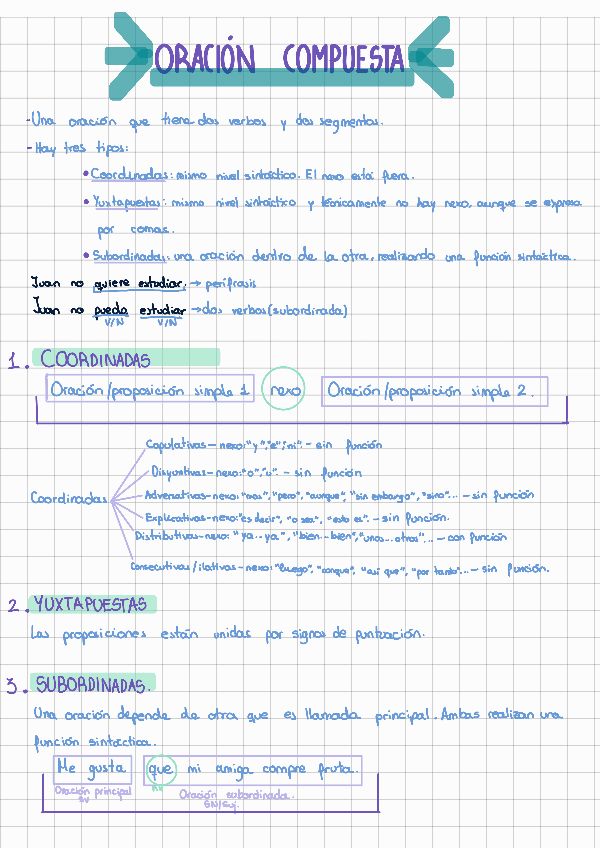 ORACIÓN COMPUESTA
-Una oración que tiene dos verbos y dos segmentos.
-Hay tres tipos:
•Coordinadas: mismo nivel sintáctico. El nexo está fuera.
•Yuxtapuestas: mismo nivel sintáctico y técnicamente no hay nexo, aunque se expresa
por comas.
•Subordinadas: una oración dentro de la otra, realizando una función sintáctica.
Juan no quiere estudiar. → perífrasis
Juan no puedo estudiar → dos verbos (subordinada)
V/N V/N
1. COORDINADAS
Oración/proposición simple 1 nexo Oración/proposición simple 2.
Copulativas – nexo: "y", "e", "ni". – sin función
Disyuntivas – nexo: "o", "u". – sin función
Coordinadas
Adversativas – nexo: "mas", "pero", "aunque", "sin embargo", "sino"... – sin función
Explicativas – nexo: "es decir", "o sea", "esto es". – sin función.
Distributivas – nexo: "ya...ya", "bien...bien", "unos...otros"... – con función
Consecutivas/ilativas – nexo: "luego", "conque", "así que", "por tanto"... – sin función.
2. YUXTAPUESTAS
Las proposiciones están unidas por signos de puntuación.
3. SUBORDINADAS.
Una oración depende de otra que es llamada principal. Ambas realizan una
función sintáctica.
Me gusta que mi amiga compre fruta.
Oración principal Nx Oración subordinada.
SV SN/Suj.